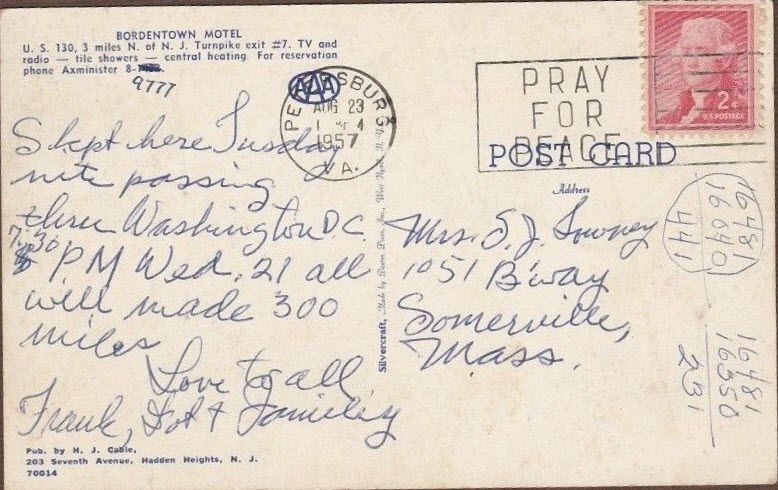 BORDENTOWN MOTEL
U. S. 130, 3 miles N. of N. J. Turnpike exit #7. TV and
radio — tile showers — central heating. For reservation
phone Axminister 8-
9777
AAA
PETERSBURG
AUG 23
1957
VA.
PRAY
FOR
PEACE
2¢
U.S. POSTAGE
POST CARD
Address
Slept here Tusday
nite passing
thru Washington D.C.
7:30
PM Wed. 21 all
well made 300
miles
Love to all
Frank, Dot & Family
Mrs. S. J. Lowney
1051 B'way
Somerville,
Mass.
16481
16040
441
16481
16250
231
Silvercraft, Made by Dexter Press, Inc., West Nyack, N. Y.
Pub. by H. J. Cable,
203 Seventh Avenue, Hadden Heights, N. J.
70014